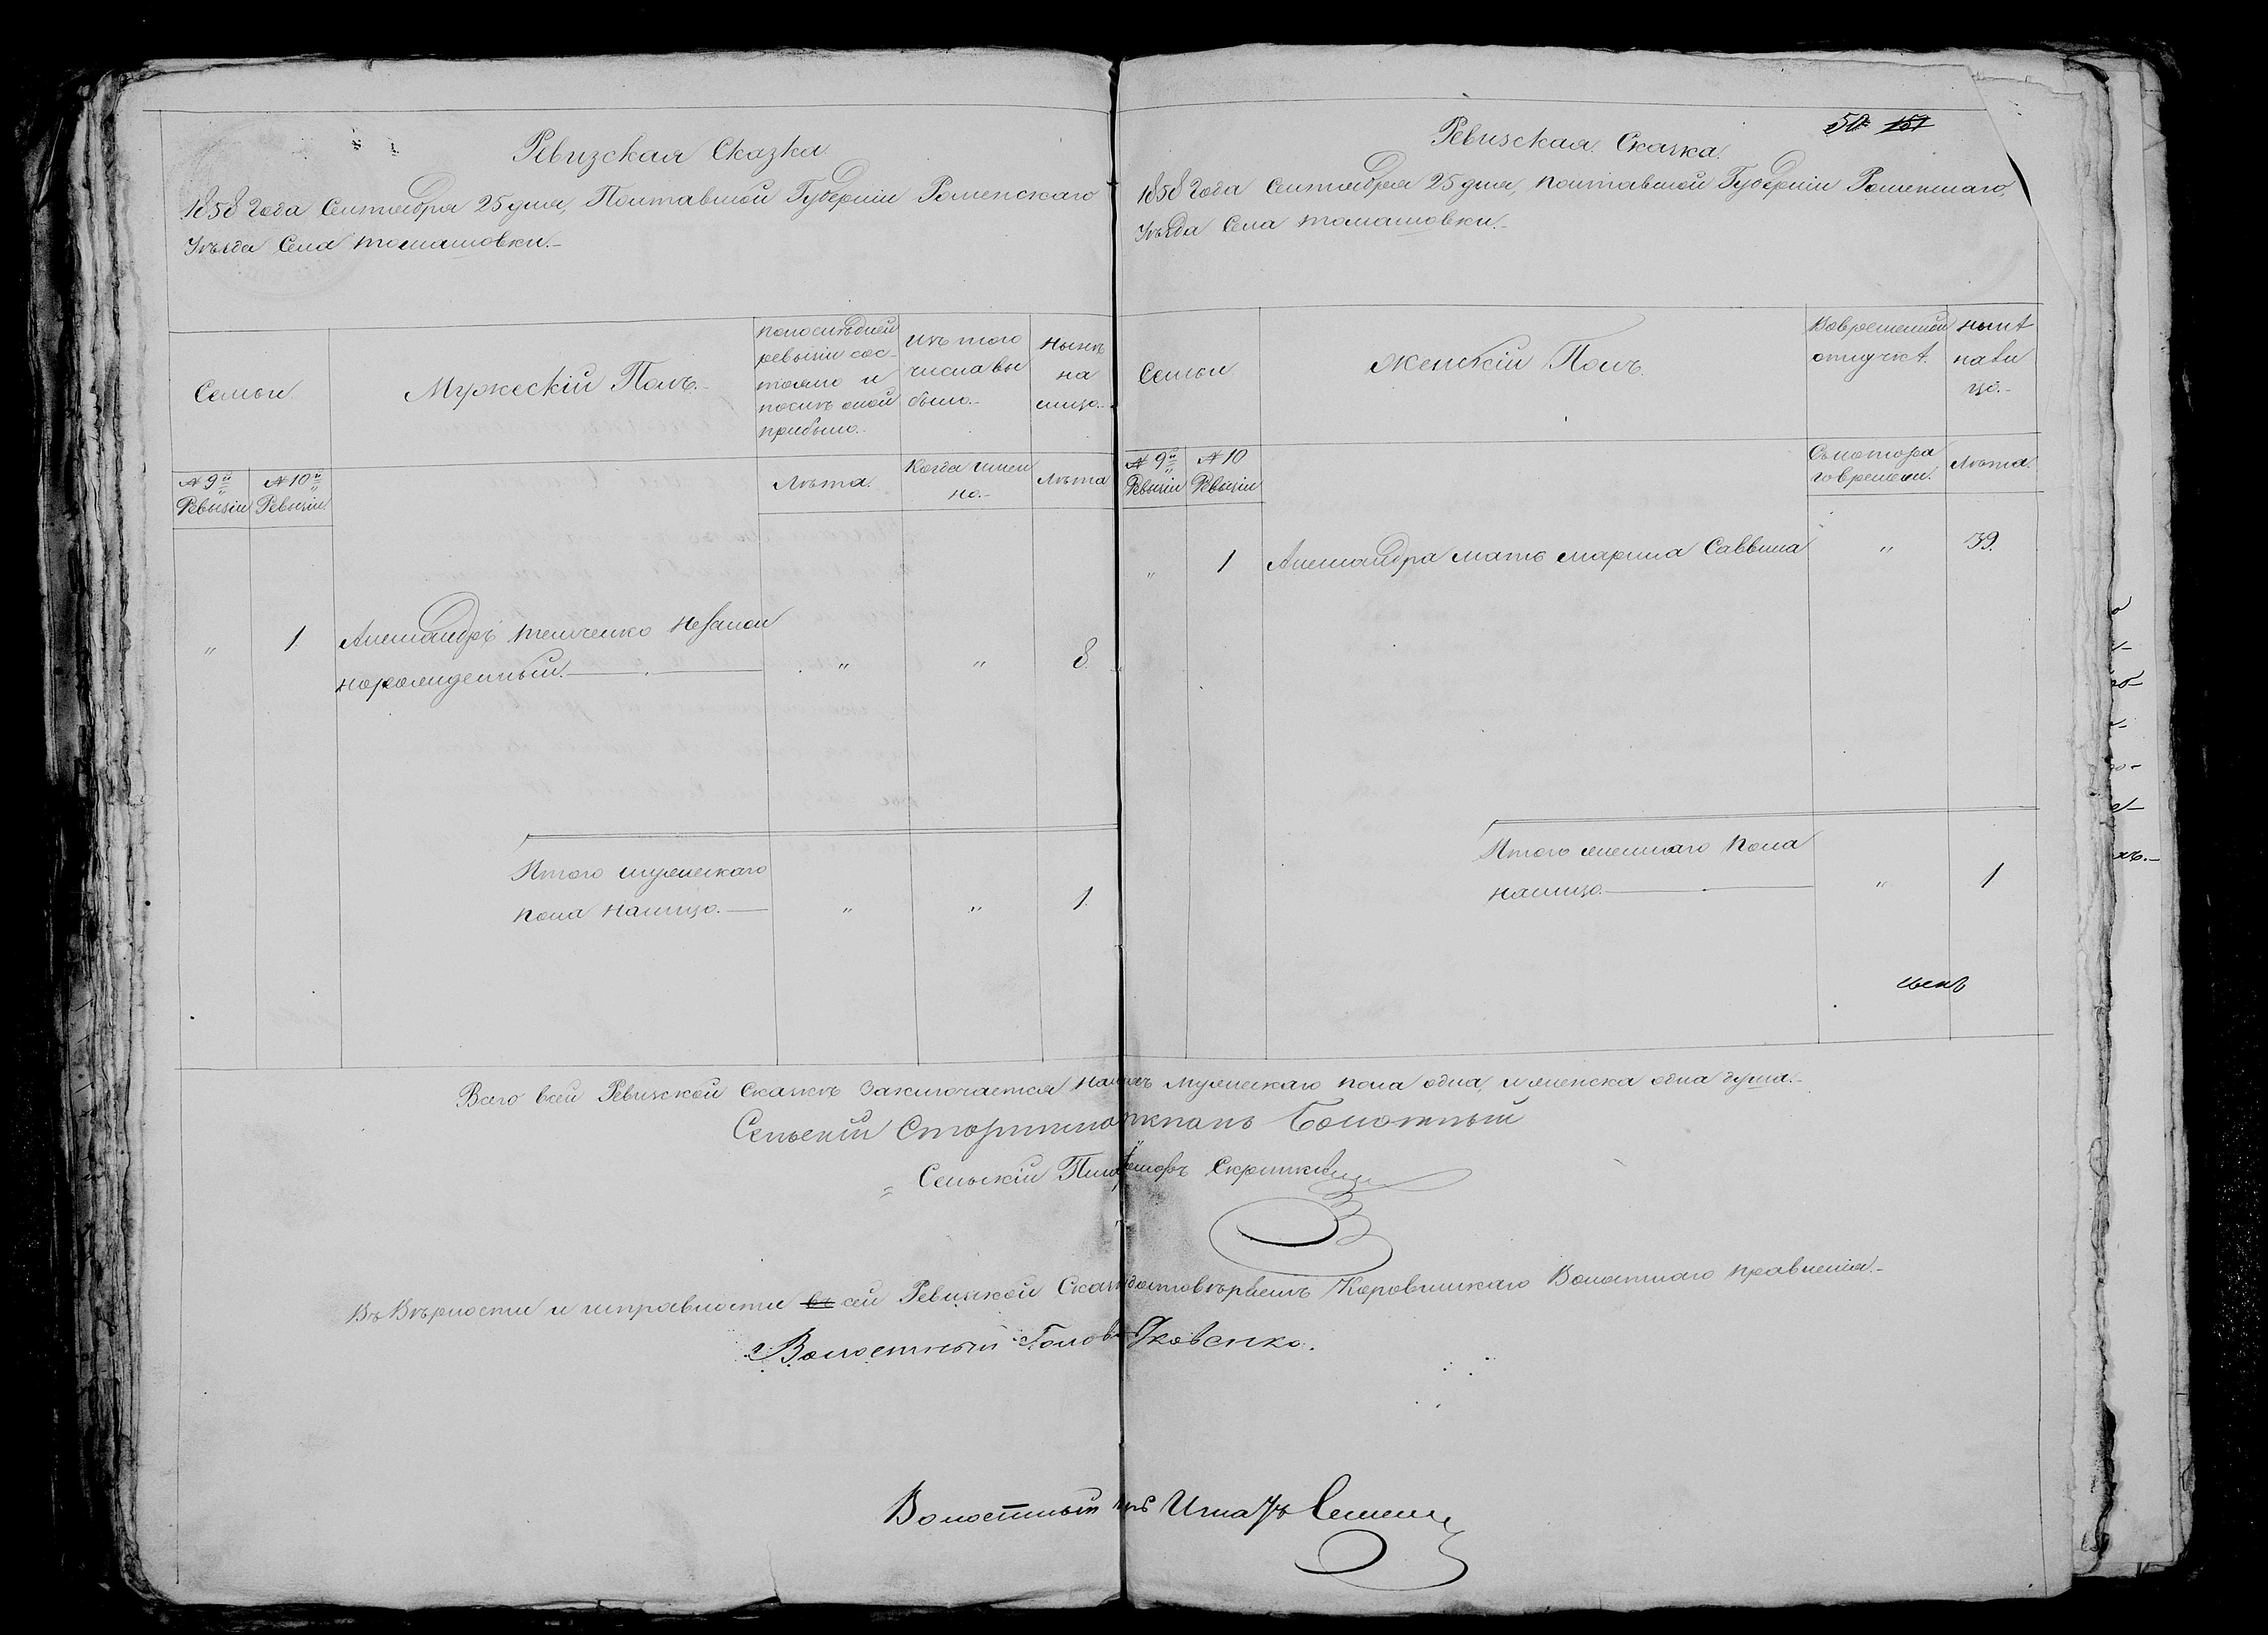 Ревизская Сказка.
1858 Года Сентября 25 дня, Полтавской Губернии Роменскаго
Уѣзда Села Томашовки.
Семьи.
Мужескій Полъ.
По последней
ревизіи сос-
тояло и
послѣ оной
прибыло.
Изъ того
числа вы
было.
Нынѣ
на
лицо.
№ 9й
Ревизіи
№ 10й
Ревизіи
Лѣта.
Когда имен
но.
Лѣта
" 1. Александръ
рожденный. " " 8.
Итого мужескаго
пола налицо. " " 1.
Ревизская Сказка.
50 151
1858 Года Сентября 25 дня, Полтавской Губерніи Роменскаго,
Уѣзда Села Томашовки.
Семьи
Женскій Полъ.
Вовременной
отлучкѣ.
Нынѣ
нали
цо.
№ 9й
Ревизіи
№ 10
Ревизіи
Съкотора
говремени.
Лѣта.
" 1 Александра мать Марина Саввина " 39.
Итого женскаго пола
налицо. " 1
Всего всей Ревизской Сказкѣ Заключается мужескаго пола одна, и женска одна душа.
Сельскій Болотный
Сельскій
Въ Вѣрности и исправности въ сей Ревизской Коровинскаго Волостнаго правленія.
Волостный Голова Яковенко.
Волостный